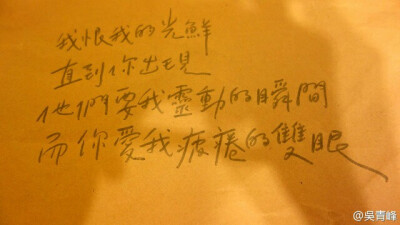 我恨我的光鮮
直到你出現
他們要我靈動的瞬間
而你愛我疲倦的雙眼
@吳青峰